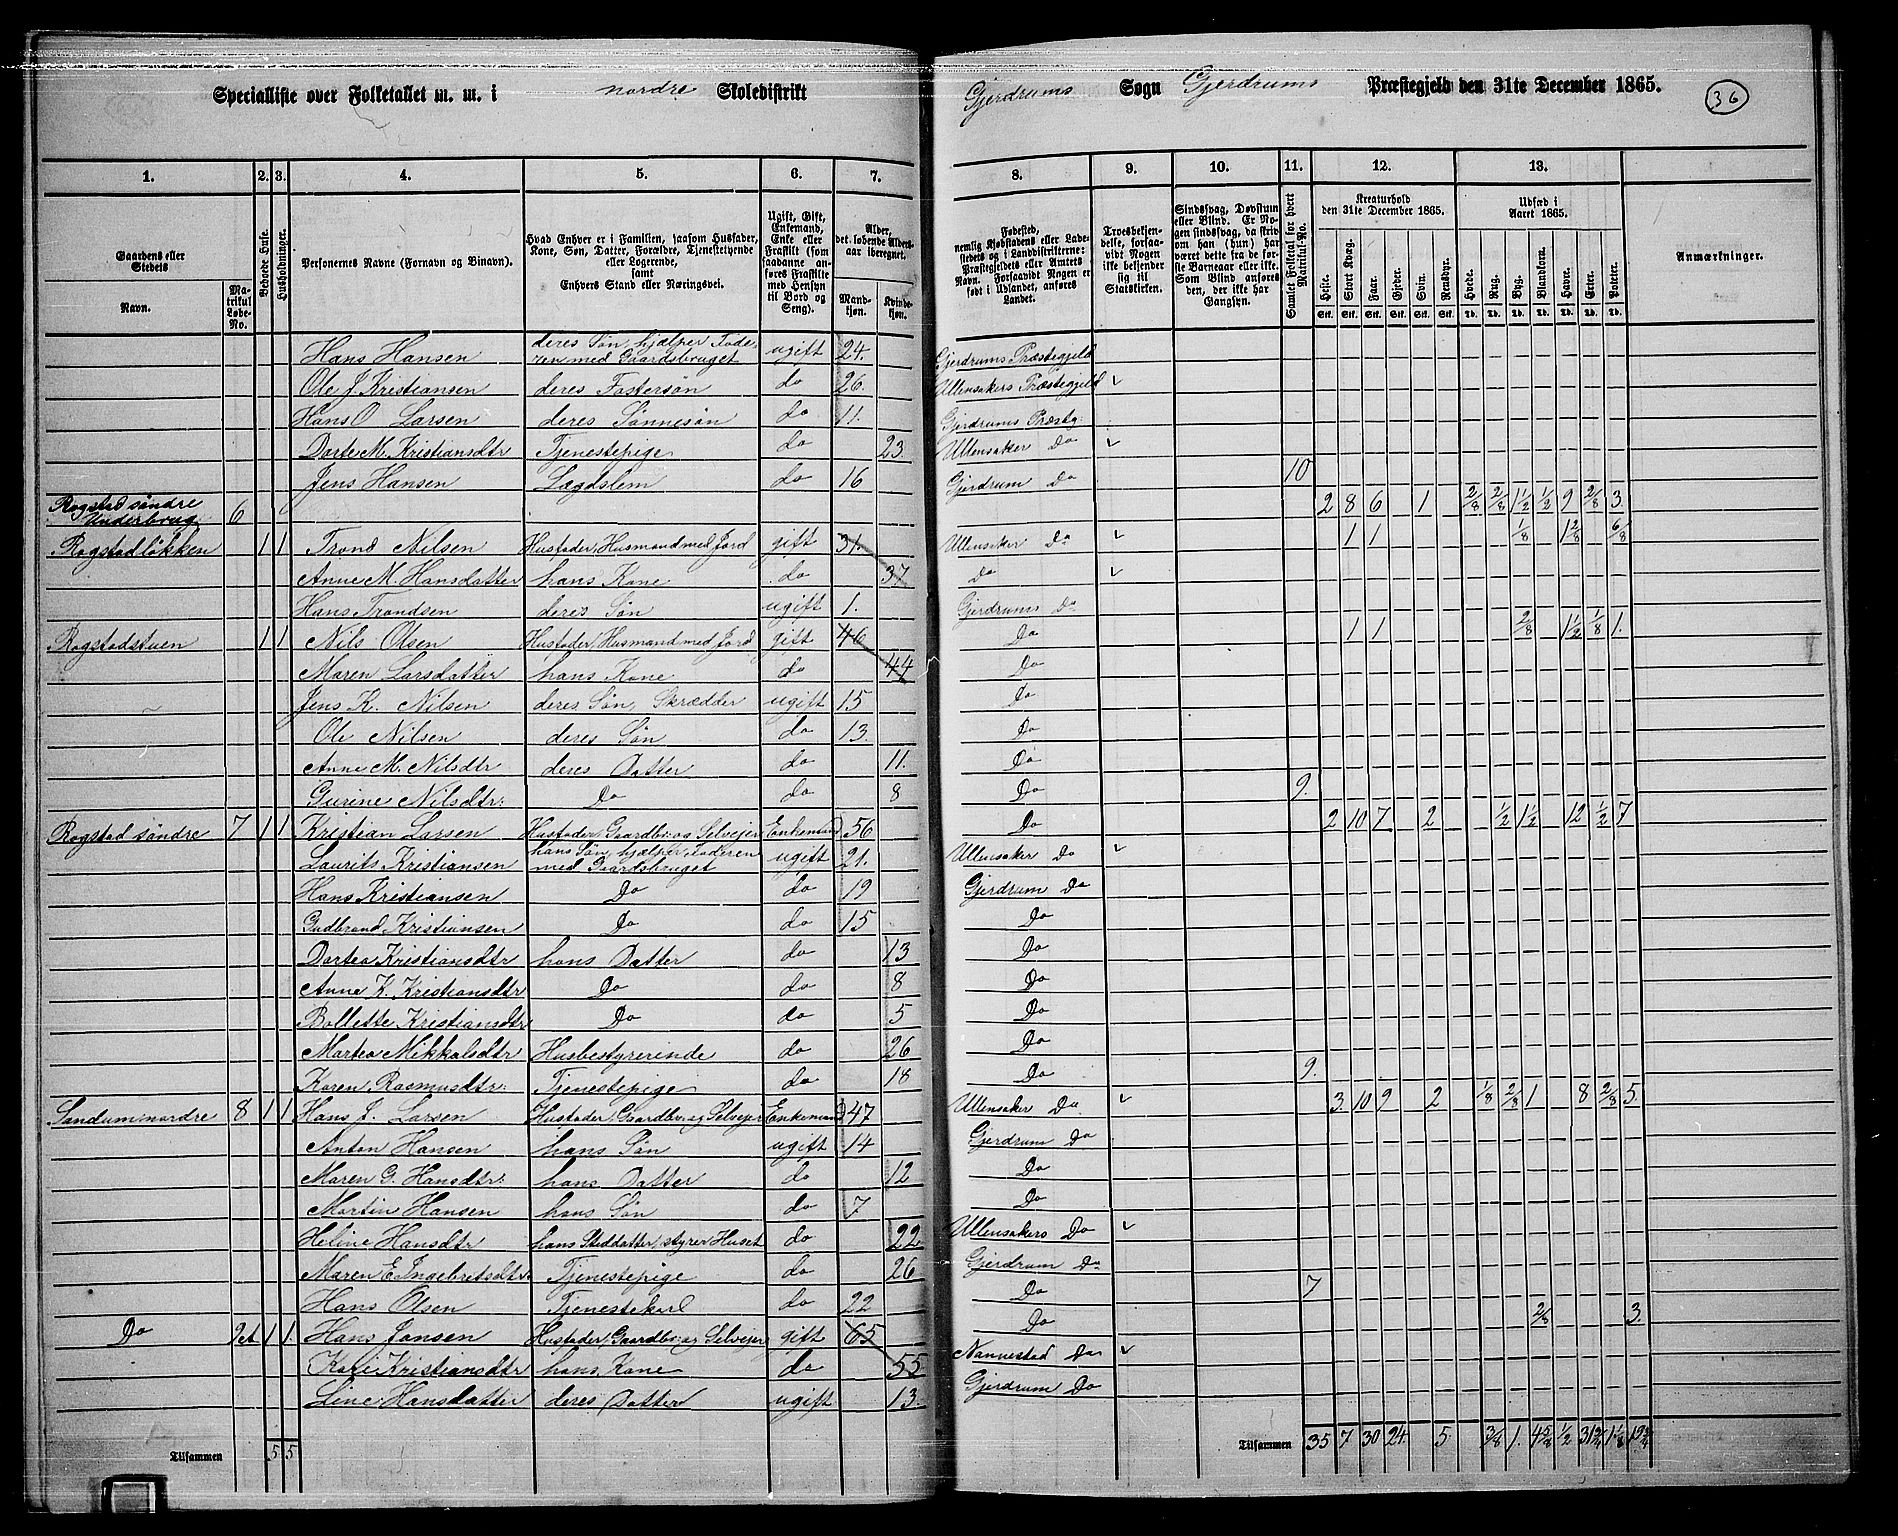 Specialliste over Folketallet m. m. i nordre Skoledistrikt Gjerdrums Sogn Gjerdrums Præstegjeld den 31te December 1865. 36
1. 2. 3. 4. 5. 6. 7. 8. 9. 10. 11. 12. 13.
Gaardens eller Stedets
Navn.
Matrikul Løbe-No.
Beboede Huse.
Husholdninger.
Personernes Navne (Fornavn og Binavn).
Hvad Enhver er i Familien, saasom Husfader, Kone, Søn, Datter, Forældre, Tjenestetyende eller Logerende, samt Enhvers Stand eller Næringsvei.
Ugift, Gift, Enkemand, Enke eller Fraskilt (som saadanne anføres Fraskilte med Hensyn til Bord og Seng).
Alder, det løbende Aldersaar iberegnet.
Mandkjøn. Kvindekjøn.
Fødested, nemlig Kjøbstadens eller Ladestedets og i Landdistrikterne: Præstegjeldets eller Amtets Navn. Forsaavidt Nogen er født i Udlandet, anføres Landet.
Troesbekjendelse, forsaavidt Nogen ikke bekjender sig til Statskirken.
Sindssvag, Døvstum eller Blind. Er Nogen sindssvag, da skriv om han (hun) har været dette fra de første Barneaar eller ikke. Som Blind anføres den, der ikke har Gangsyn.
Samlet Folketal for hvert Matrikul-No.
Kreaturhold den 31te December 1865.
Heste. Stort Kvæg. Faar. Gjeder. Svin. Rensdyr.
Udsæd i Aaret 1865.
Hvede. Rug. Byg. Blandkorn. Havre. Erter. Poteter.
Anmærkninger.
Hans Hansen deres Søn, hjælper Faderen med Gaardsbruget ugift 24. Gjerdrums Præstegjeld
Ole J Kristiansen deres Fostersøn do 26. Ullensakers Præstegjeld
Hans O Larsen deres Sønnesøn do 11. Gjerdrums Præstg:
Dorte M. Kristiansdtr Tjenestepige do 23. Ullensaker Do
Jens Hansen Lægdslem do 16 Gjerdrum Do 10
Rogstad søndre Underbrug 6 2 8 6 1 2/8 2/8 1 1/2 1/2 9 2/8 3.
Rogstadløkken 1 1 Trond Nilsen Husfader, Husmand med Jord gift 31. Ullensaker Do 1 1 1/8 1 2/8 6/8
Anne M. Hansdatter hans Kone do 37 Do
Hans Trondsen deres Søn ugift 1. Gjerdrums Do
Rogstadstuen 1 1 Nils Olsen Husfader, Husmand med Jord gift 46 Do 1 1 2/8 1 1/2 1/8 1.
Maren Larsdatter hans Kone do 44 Do
Jens K. Nilsen deres Søn, Skrædder ugift 15 Do
Ole Nilsen deres Søn do 13. Do
Anne M. Nilsdtr deres Datter do 11. Do
Gurine Nilsdtr: Do do 8 Do 9.
Rogstad søndre 7 1 1 Kristian Larsen Husfader, Gaardbr: og Selveier Enkemand 56 Do 2 10 7 2 1/2 1 1/2 12 1/2 7
Laurits Kristiansen hans Søn, hjælper Faderen med Gaardsbruget ugift 21. Ullensaker Do
Hans Kristiansen Do do 19 Gjerdrum Do
Gudbrand Kristiansen Do do 15 Do
Dortea Kristiansdtr hans Datter do 13 Do
Anne K. Kristiansdtr Do do 8 Do
Bollette Kristiansdtr Do do 5 Do
Martea Mikkalsdtr Husbestyrerinde do 26 Do
Karen Rasmusdtr: Tjenestepige do 18 Do 9.
Sandum nordre 8 1 1 Hans J. Larsen Husfader, Gaardbr: og Selveier Enkemand 47 Ullensaker Do 3. 10 9 2 1/8 2/8 1 8 2/8 5.
Anton Hansen hans Søn ugift 14 Gjerdrum Do
Maren G. Hansdtr: hans Datter do 12 Do
Martin Hansen hans Søn do 7 Do
Heline Hansdtr hans Steddatter, styrer Huset do 22. Ullensakers Do
Maren E. Ingebretsdtr Tjenestepige do 26 Gjerdrum Do
Hans Olsen Tjenestekarl do 22 Do 7
Do 1 1. Hans Jansen Husfader, Gaardbr: og Selveier gift 65 Do 2/8 3.
Kari Kristiansdtr hans Kone do 55 Nannestad Do
Line Hansdatter deres Datter ugift 13. Gjerdrum Do
Tilsammen 5 5 Tilsammen 35 7 30 24. 5 3/8 1. 4 5/8 1/2 31 3/4 1 1/8 19 3/4